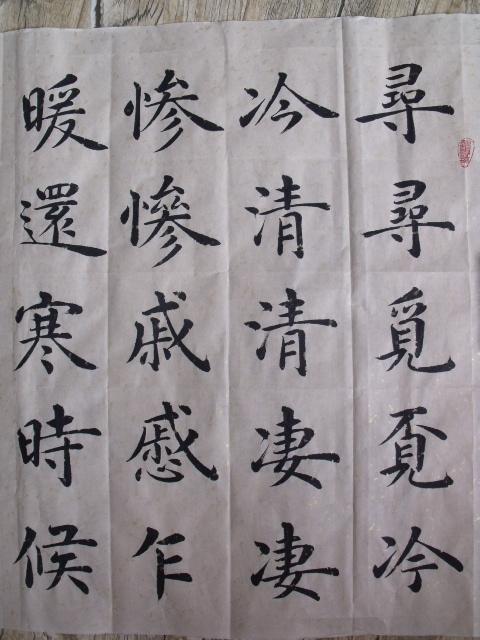 尋尋覓覔冷
冷清清凄凄
惨慘戚慼乍
暖還寒時候